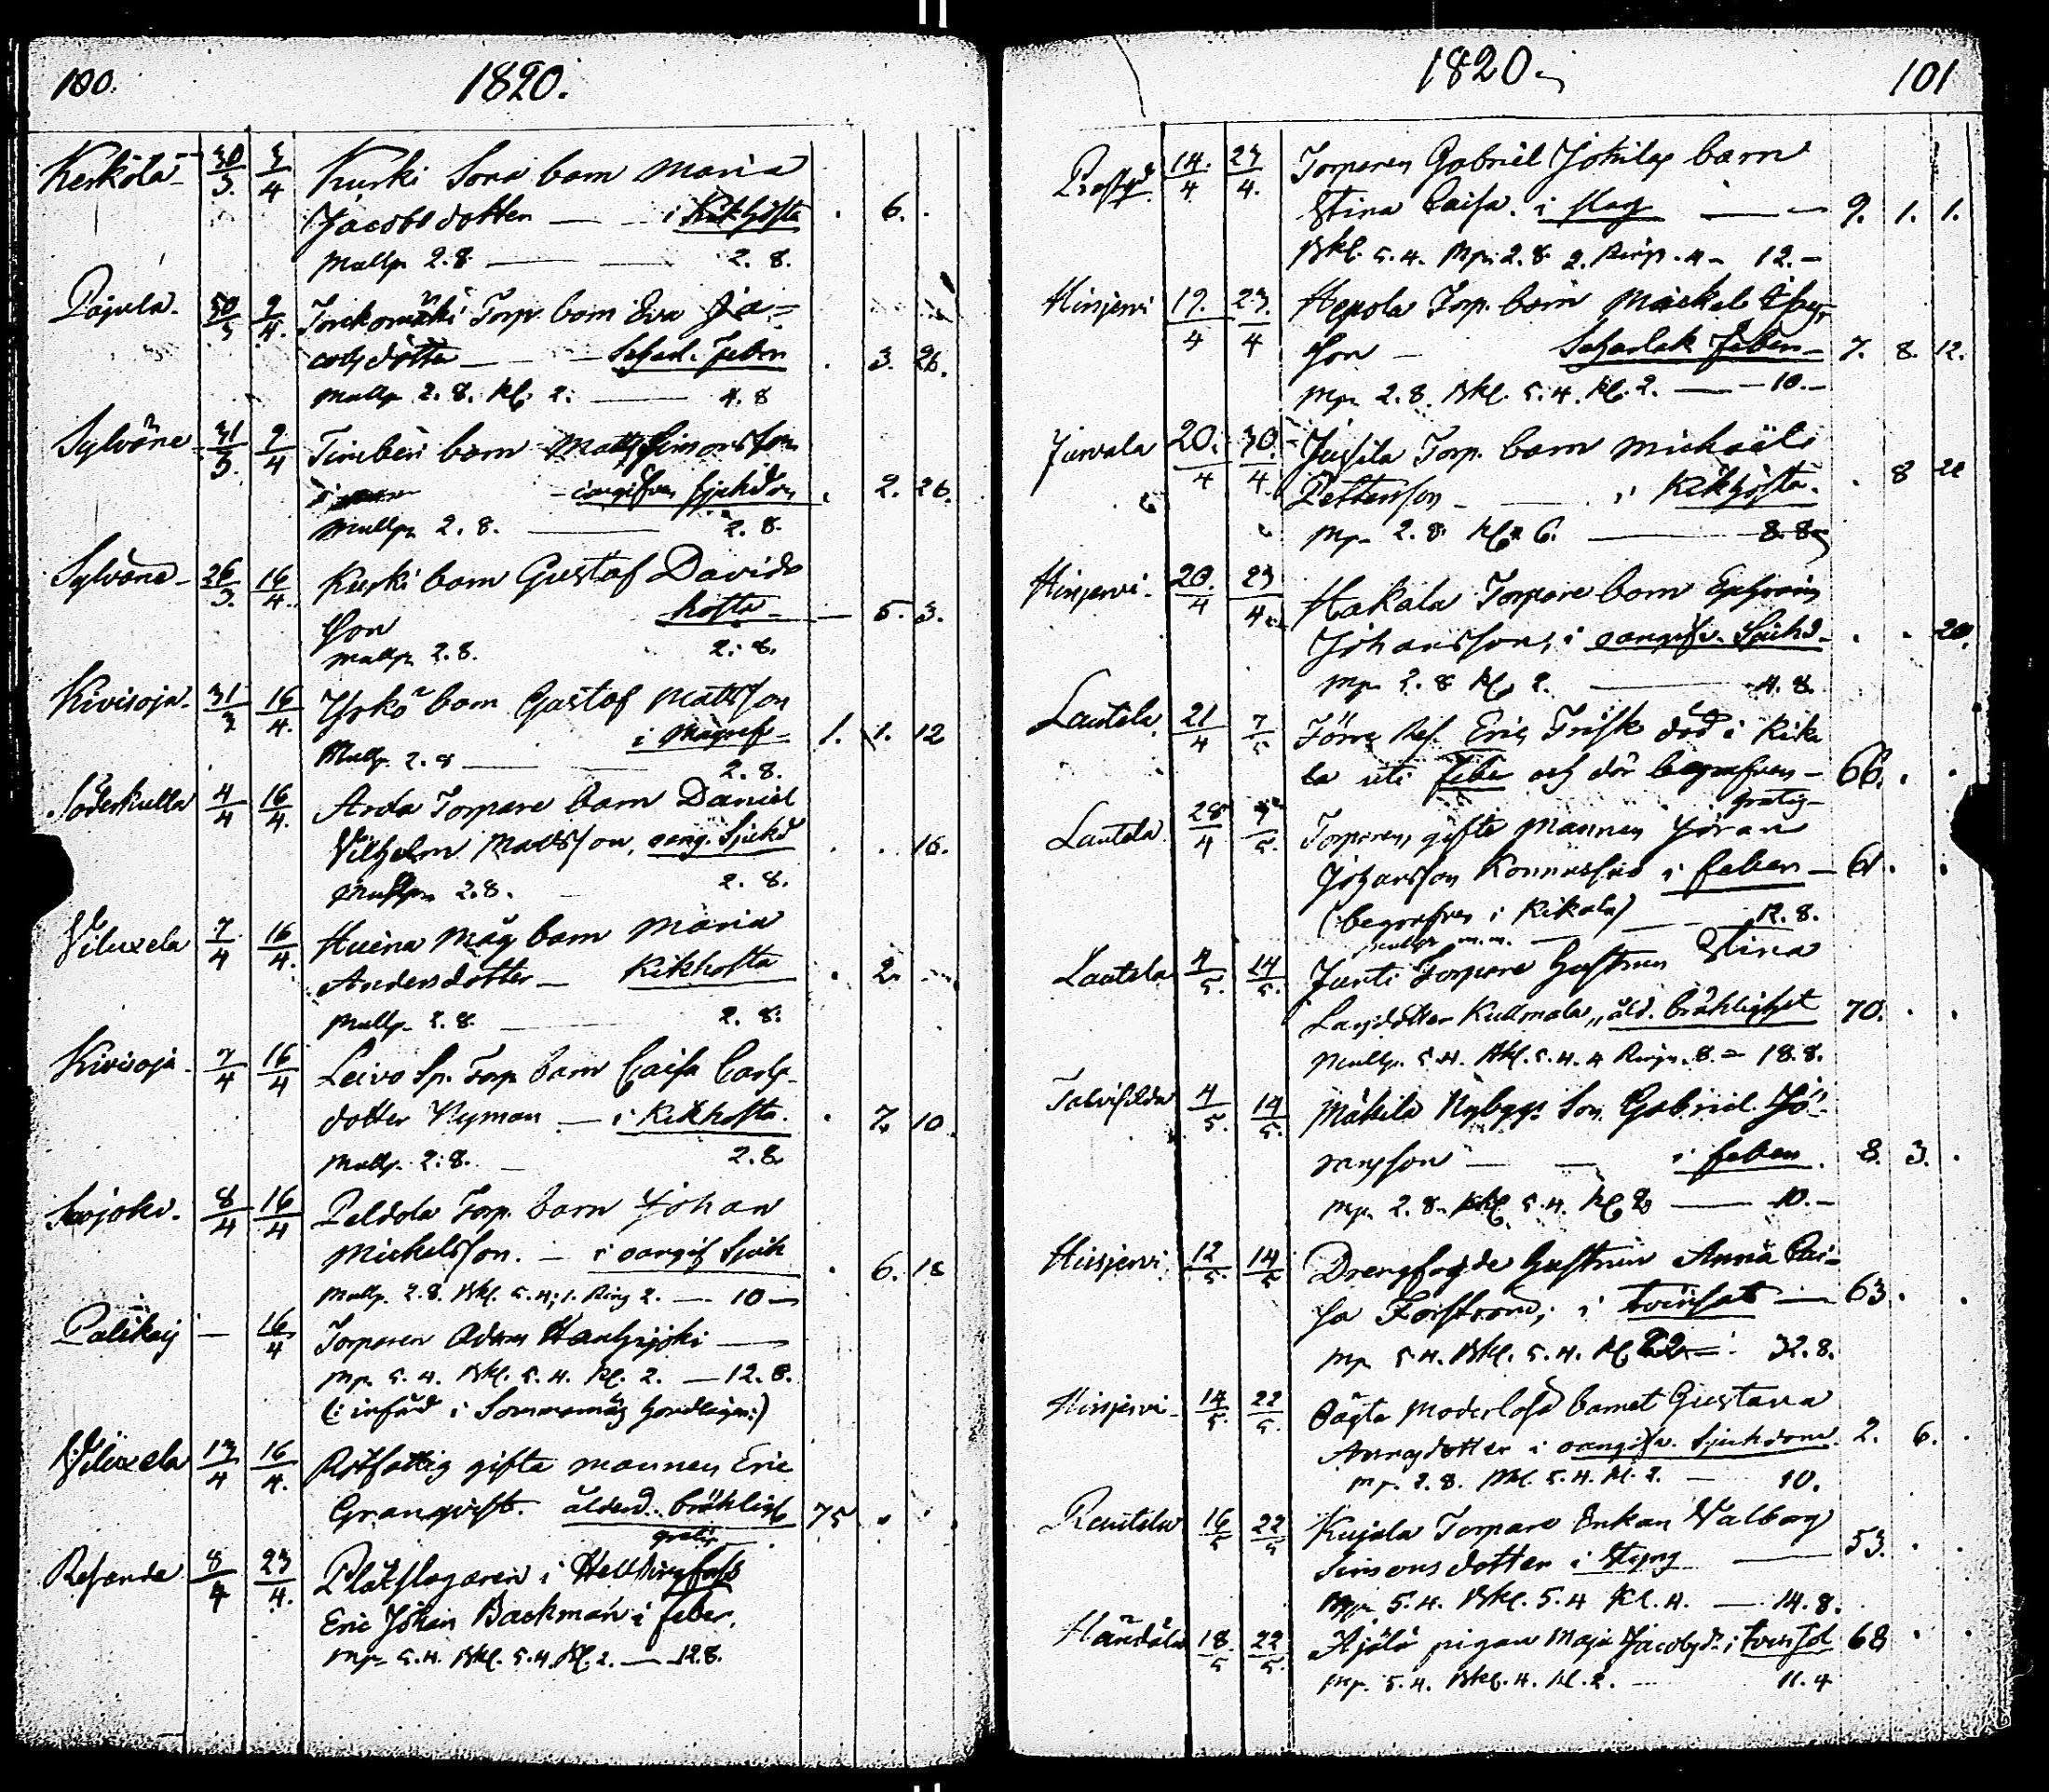 100.
1820.
Keskölä 30/3. 3/4 Kuski Sona barn Maria
Jacobsdotter — i Kikhosta . 6. .
Mullp. 2.8 — 2. 8.
Pajula. 30/3 2/4. Torp. barn Eva Ja-
cobsdotter — Scharl. Feber . 3. 26.
Mullp. 2. 8. Kl. 2. — 4. 8
Sylvöne 31/3. 2/4 barn Matts Simonsson
oangifven sjukdom . 2. 26.
Mullp. 2. 8. — 2. 8.
Sylvöne 26/3. 16/4. Kuski barn Gustaf Davids
son hosta — 5. 3.
Mullp. 2. 8. 2. 8.
Kivisoja. 31/3 16/4. Yrkö barn Gustaf Mattsson
i Magref 1. 1. 12
Mullp. 2. 8 — 2. 8.
Söderkulla 4/4 16/4. Arola Torpare barn Daniel
Vilhelm Mattsson, oang. Sjukd . . 16.
Mullp. 2.8. 2. 8.
Viluxela 7/4 16/4. Huena Måg barn Maria
Andersdotter — Kikhosta . 2. .
Mullp. 2. 8. — 2. 8.
Kivisoja 7/4 16/4 Leivo Sp. Torp. barn Caisa Carls-
dotter Nyman — i Kikhosta . 7. 10.
Mullp. 2. 8. 2. 8.
Sarjoki. 8/4 16/4 Peldola Torp. barn Johan
Mickelsson. — i oangif Sjuk . 6. 18
Mullp. 2. 8. Bkl. 5. 4; 1. Ring 2. — 10 —
— 16/4 Torparen Adam —
Mp. 5. 4. Bkl. 5. 4. Kl. 2. — 12. 8.
(: införd i Sommarnäs :)
Viluxela 13/4 16/4. Rotfattig gifta mannen Eric
Granqvist. ålderd. bräklight 75 . .
gratis
8/4 23/4. Plåtslagaren i Hellsingfors
Eric Johan Backman i feber.
Mp. 5. 4. Bkl. 5. 4. Kl. 2. — 12.8.
1820.
101
Prestgd 14./4 23/4. Torparen Gabriel Jokilas barn
Stina Caisa. i slag — 9. 1. 1.
Bkl. 5. 4. Mp. 2. 8. 2. Ringn. 4 - 12. -
Hirsjervi 19./4 23./4 Hepola Torp. barn Mickel Thoms
son — Scharlak Feber — 7. 8. 12.
Mp. 2. 8. Bkl. 5. 4. Kl. 2. — 10. -
Jurvala 20./4 30./4. Jussila Torp. barn Michaël
Pettersson — i Kikhosta. . 8 21
Mp. 2. 8. Kl. 6. — 8. 8.
Hirsjervi. 20./4 23/4 Hakala Torpare barn Ephraim
Johansson, i oangifv. Sjukd. . . 20.
Mp. 2. 8 Kl. 2. — 4. 8.
Lautela 21/4 7/5 Förre Ref. Eric Frisk död i Kika
la uti feber och där begrafven — 66. . .
gratis
Lautela 28/4 7/5. Torparen, gifte Mannen Jöran
Johansson i feber — 61. .
(begrafven i Kikala) — 12. 8.
Lautela 4/5. 14/5. Junti Torpare Hustrun Stina
Larsdotter Kullmala, åld. bräklighet 70. . .
Mullp. 5.4. Bkl. 5. 4. 4 Ringn. 8. = 18. 8.
4/5. 14/5. Mäkilä Nybygg. Son Gabriel Jö-
ransson — i feber. 8. 3. .
Mp. 2. 8. Bkl. 5. 4. Kl. 2 — 10. -
Hirsjervi 12/5. 14/5 Drengfogde Hustrun Anna Cai-
sa Forsström, i tvinsot — 63. .
Mp. 5. 4. Bkl. 5. 4. Kl. 22 — 32. 8.
Hirsjervi 14/5. 22/5. Moderlösa barnet Gustava
Annasdotter i oangifv. Sjukdom. 2. 6. .
Mp. 2. 8. Bkl. 5. 4. Kl. 2. — 10.
Rautela 16/5 22/5 Kujala Torpare Enkan Valborg
Simonsdotter i Styng — 53. . .
Mp. 5. 4. Bkl. 5. 4 Kl. 4. — 14. 8.
Händälä 18./5 22/5. pigan Maja Jacobsd: i tvinsot 68 . .
Mp. 5. 4. Bkl. 4. Kl. 2. — 11. 4